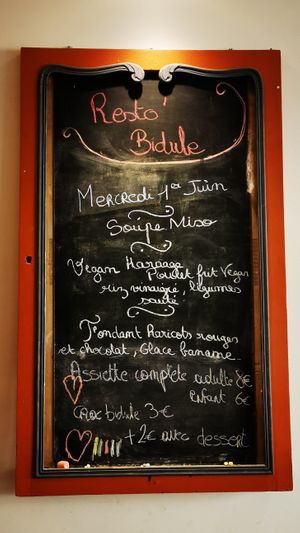 Resto'
Bidule
Mercredi 1er Juin
Soupe Miso
Vegan
Poulet frit Vegan
riz vinaigré, légumes
sauté
Fondant Haricots rouges
et chocolat, Glace banane
Assiette complete adulte 8€
Enfant 6€
Croc bidule 3€
+2€ avec dessert